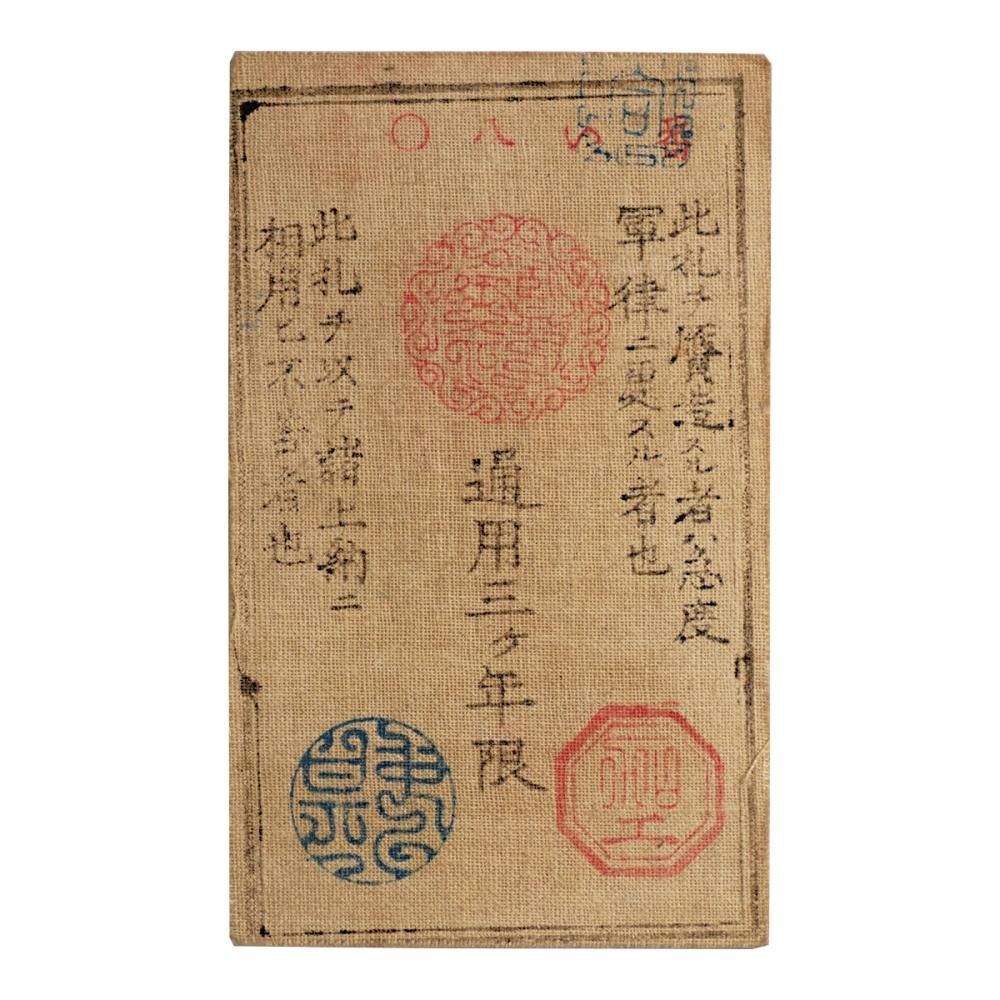 此札ヲ贋造スル者ハ急度
軍律ニ処スル者也
通用三ケ年限
此札ヲ以テ諸上納ニ
相用ヒ不苦者也